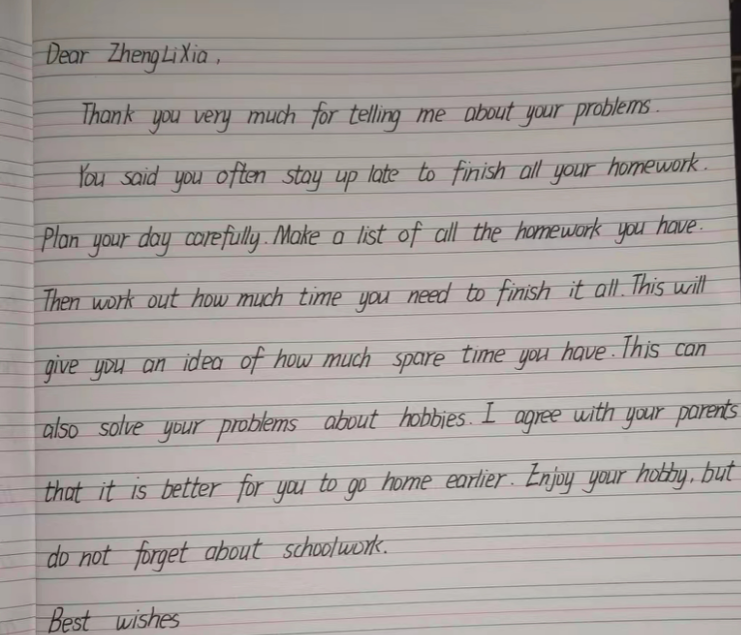 Dear ZhengLiXia,
Thank you very much for telling me about your problems.
You said you often stay up late to finish all your homework.
Plan your day carefully. Make a list of all the homework you have.
Then work out how much time you need to finish it all. This will
give you an idea of how much spare time you have. This can
also solve your problems about hobbies. I agree with your parents
that it is better for you to go home earlier. Enjoy your hobby, but
do not forget about schoolwork.
Best wishes